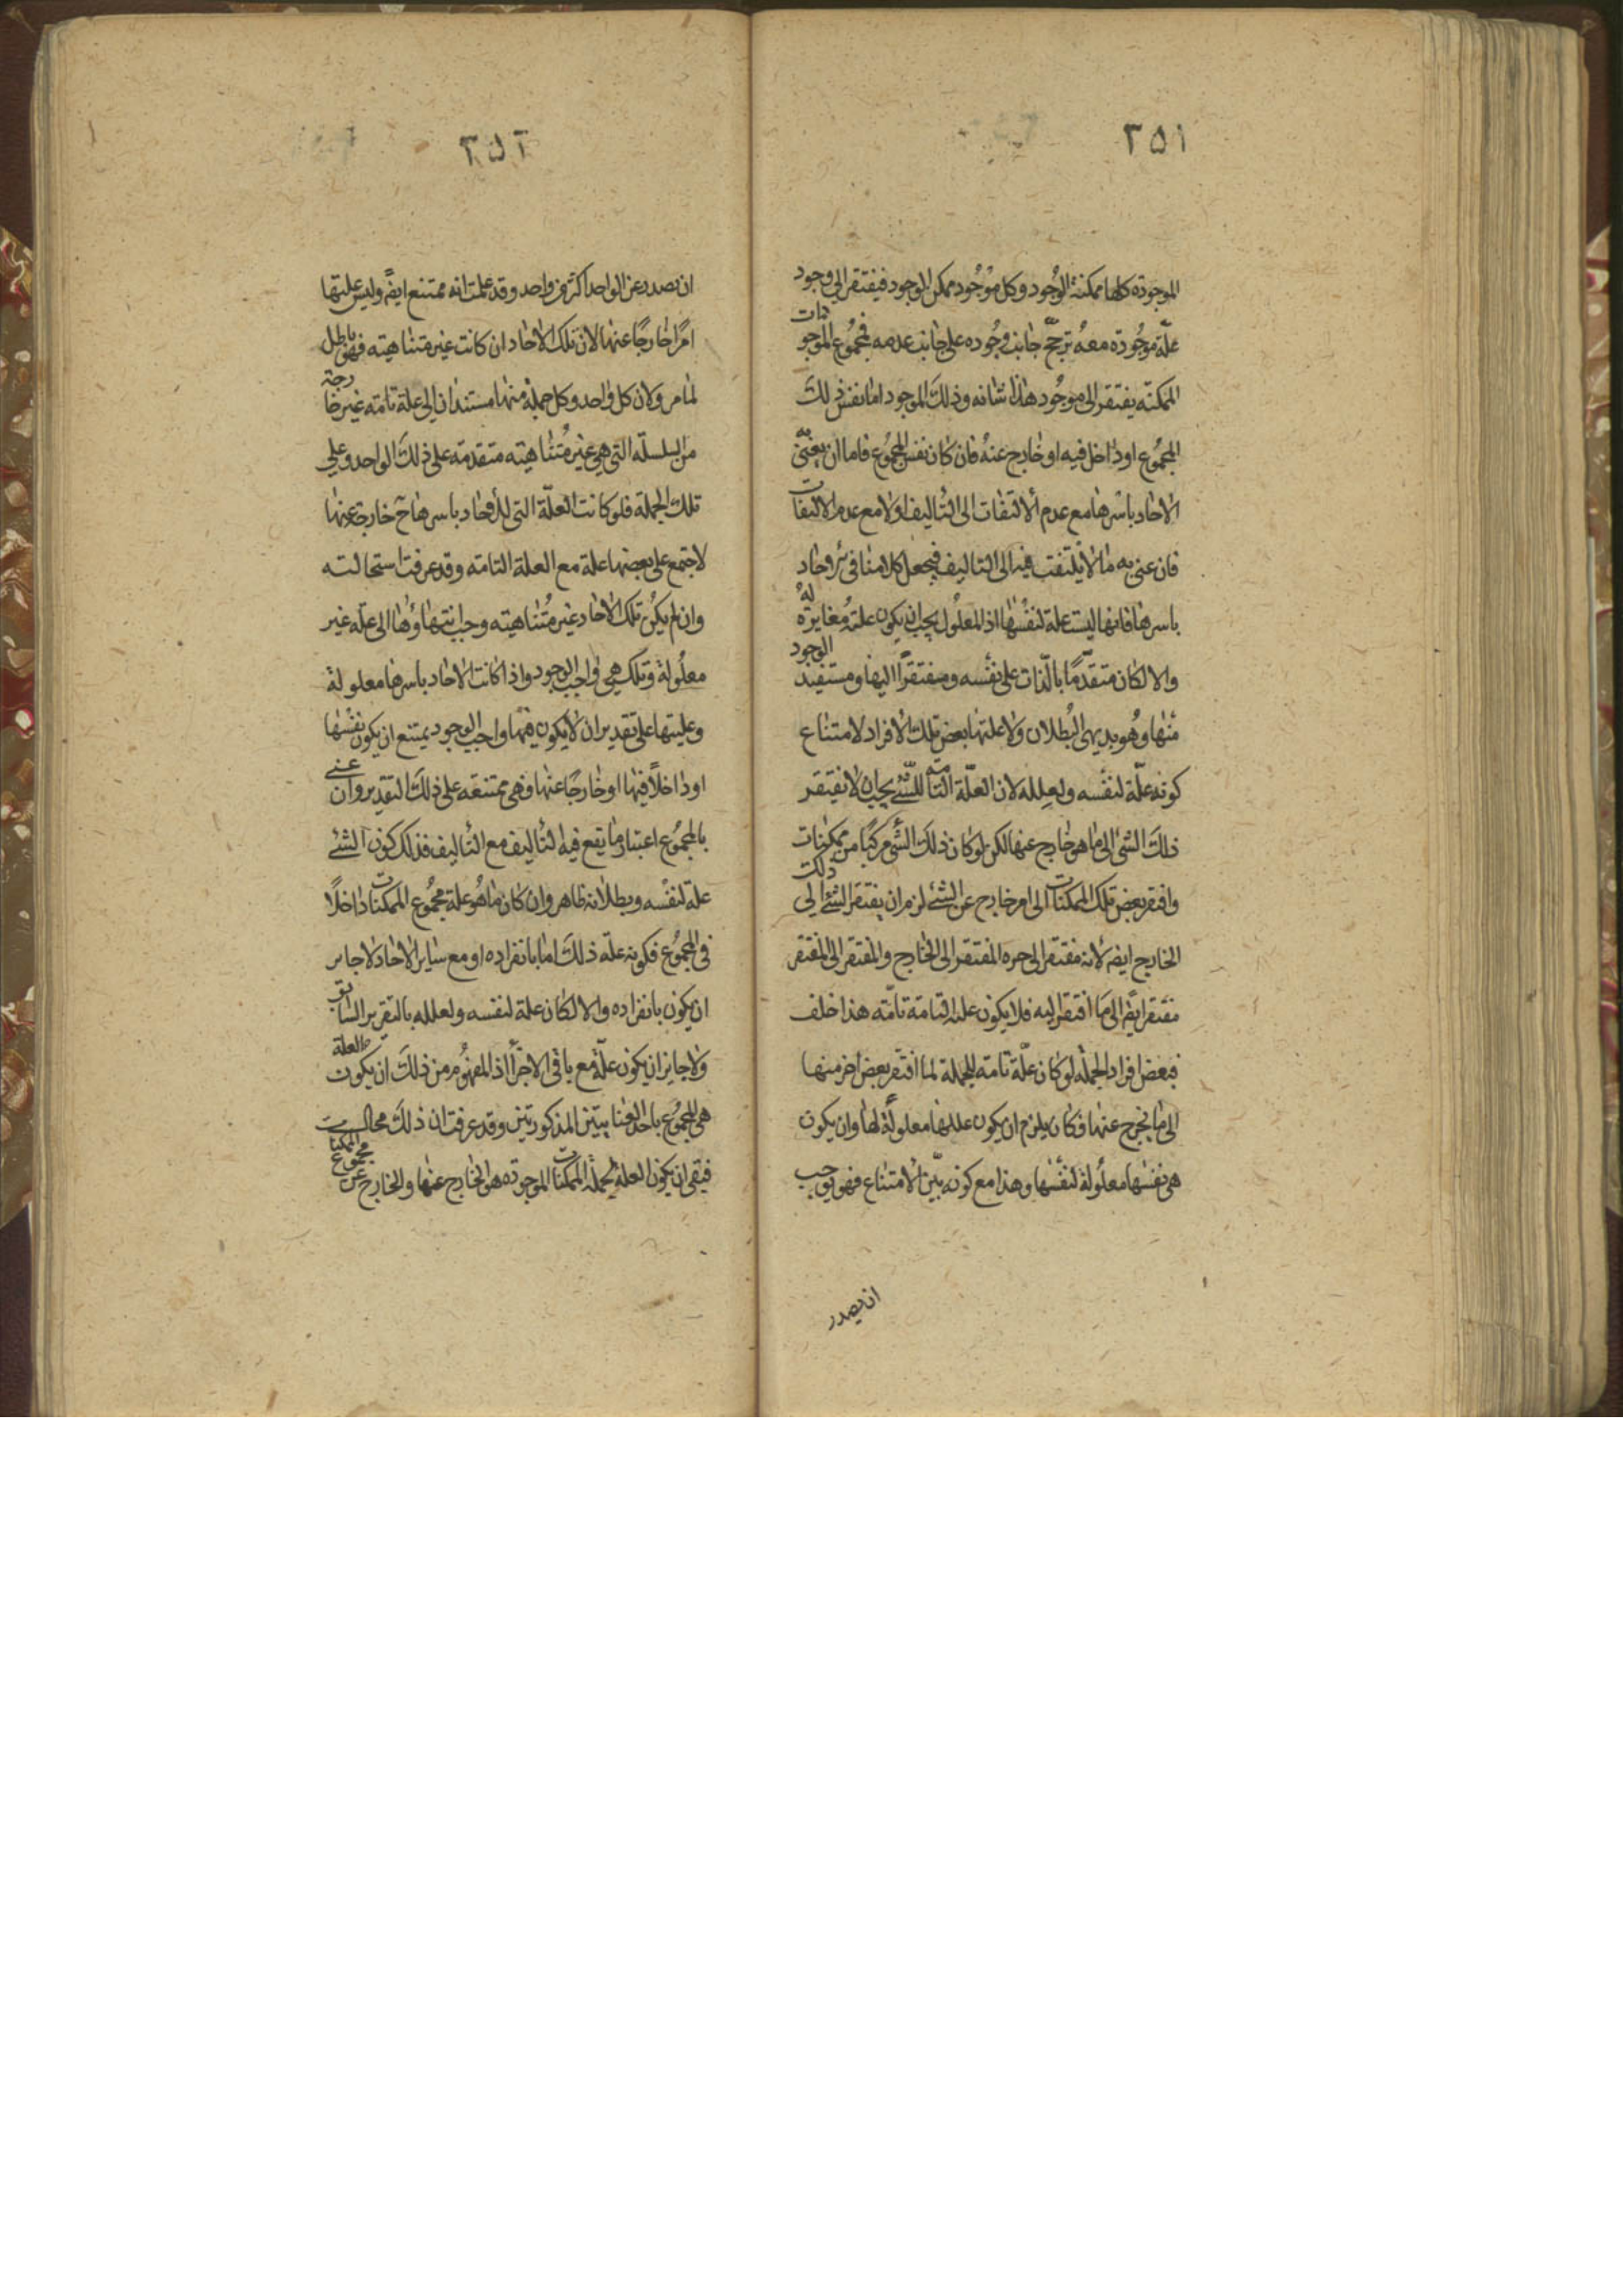 ٣٥١
الموجودة كلها ممكنة الوجود وكل موجود ممكن الوجود فيفتقر الى وجود
علّة موجودة معه ترجّح جانب وجوده على جانب عدمه فمجموع الموجودات
الممكنه يفتقر الى موجود هذا شانه وذلك الموجود اما نفس ذلك
المجموع او داخل فيه او خارج عنه فان كان نفس المجموع فاما ان يعنى به
الاحاد باسرها مع عدم الالتفات الى التاليف او لا مع عدم الالتفات
فان عنى به ما لا يلتفت فيه الى التاليف فيجعل كلامنا فى
باسرها فانها ليست علة لنفسها اذ المعلول يجب ان يكون علته مغايرة له
والا لكان متقدّمًا بالذات على نفسه ومفتقرًا اليها ومستفيد الوجود
منها وهو بديهى البطلان ولا علتها بعض تلك الافراد لامتناع
كونه علّة لنفسه ولعلله لان العلّة التامه للشئ يجب ان لا يفتقر
ذلك الشئ الى ما هو خارج عنها لكن لو كان ذلك الشئ مركبًا من ممكنات
وافتقر بعض تلك الممكنات الى امر خارج عن الشئ لزم ان يفتقر ذلك الشئ الى
الخارج ايضه لانه مفتقر الى جزه المفتقر الى الخارج والمفتقر الى المفتقر
مفتقر ايضًا الى ما افتقر اليه فلا يكون علته التامة تامّه هذا خلف
فبعض افراد الجملة لو كان علّة تامة للجملة لما افتقر بعض اخر منها
الى ما يخرج عنها فكان يلزم ان يكون عللها معلولة لها وان يكون
هى نفسها معلولة لنفسها وهذا مع كونه بيّن الامتناع فهو يوجب
ان يصدر
٣٥٢
ان يصدر عن الواحد اكثر من واحد وقد علمت انه ممتنع ايضًا وليس علتها
امرًا خارجًا عنها لان تلك الاحاد ان كانت غير متناهيته فهو باطل
لما مر ولان كل واحد وكل جملة منها مستندان الى علة تامه غير خارجة
من السلسلّه التى هى غير متناهيته متقدمة على ذلك الواحد وعلى
تلك الجملة فلو كانت العلّة التى للاحاد باسرها ح خارجة عنها
لاجتمع على بعضها علة مع العلة التامه وقد عرفت استحالته
وان لم يكن تلك الاحاد غير متناهيته وجب انتهاؤها الى علّه غير
معلولة وتلك هى واجب الوجود واذا كانت الاحاد باسرها معلولة
وعليتها على تقدير ان لا يكون فيها واجب الوجود يمتنع ان يكون نفسها
او داخلًا فيها او خارجًا عنها فهى ممتنعه على ذلك التقدير وان عنى
بالمجموع اعتبار ما يقع فيه التاليف مع التاليف فذلك كون الشئ
علة لنفسه وبطلانه ظاهر وان كان ما هو علة مجموع الممكنات داخلًا
فى المجموع فكونه علّة ذلك اما بانفراده او مع ساير الاحاد لا جايز
ان يكون بانفراده والا لكان علة لنفسه ولعلله بالتقرير السابق
ولا جايز ان يكون علّة مع باقى الاجزأ اذ المفهوم من ذلك ان يكون العلة
هى المجموع باحد العنايتين المذكورتين وقد عرفت ان ذلك محال
فبقى ان يكون العلة لجملة الممكنات الموجودة هو الخارج عنها والخارج عن مجموع الممكنات